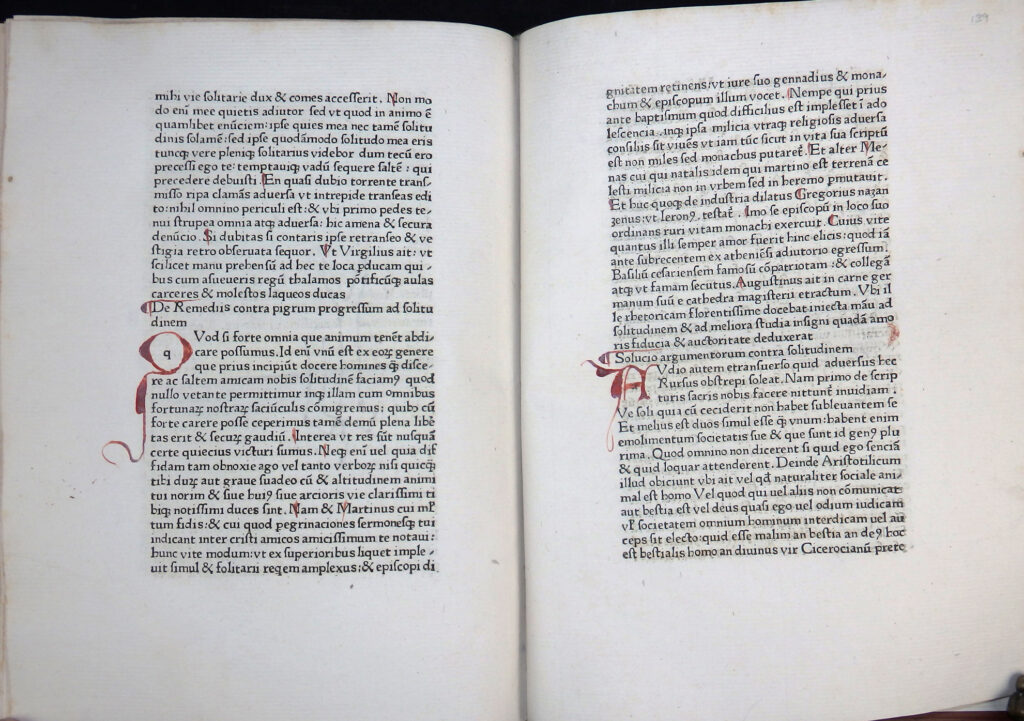 mihi vie solitarie dux & comes accesserit. Non mo
do eni mee quietis adiutor sed vt quod in animo ē
quamlibet enūciem: ipse quies mea nec tamē solitu
dinis solamē: sed ipse quodāmodo solitudo mea eris
tuncq; vere pleniq; solitarius videbor dum tecū ero
precessi ego te: temptauiq; vadū sequere saltē: qui
precedere debuisti. En quasi dubio torrente trans-
misso ripa clamās aduersa vt intrepide transeas edi
to: nihil omnino periculi est: & vbi primo pedes te-
nui strupea omnia atq; aduersa: hic amena & secura
denūcio. Si dubitas si contaris ipse retranseo & ve
stigia retro obseruata sequor. Vt Virgilius ait: vt
scilicet manu prehensū ad hec te loca pducam qui-
bus cum asueueris regū thalamos pōtificūq; aulas
carceres & molestos laqueos ducas
De Remediis contra pigrum progressum ad solitu
dinem
q Vod si forte omnia que animum tenēt abdi
care possumus. Id eni vnū est ex eoꝝ genere
que prius incipiūt docere homines ꝙ disce-
re ac saltem amicam nobis solitudinē faciamꝯ quod
nullo vetante permittimur inq; illam cum omnibus
fortunaꝝ nostraꝝ saciūculis comigremus: quibꝯ cū
forte carere posse ceperimus tamē demū plena libē
tas erit & secuꝝ gaudiū. Interea vt res sūt nusquā
certe quiecius victuri sumus. Neq; enī uel quia dif
fidam tam obnoxie ago vel tanto verboꝝ nis quicq̄
tibi duꝝ aut graue suadeo cū & altitudinem animi
tui norim & siue huiꝯ siue arcioris vie clarissimi ti
biq; notissimi duces sint. Nam & Martinus cui ml
tum fidis: & cui quod pegrinaciones sermonesq; tui
indicant inter cristi amicos amicissimum te notaui:
hunc vite modum: vt ex superioribus liquet imple-
uit simul & solitarii reqem amplexus: & episcopi di
gnitatem retinens: vt iure suo gennadius & mona-
chum & episcopum illum vocet. Nempe qui prius
ante baptismum quod difficilius est implesset ī ado
lescencia. inq; ipsa milicia vtraq; religiosis aduersa
consiliis sit viuēs vt iam tūc sicut in vita sua scriptū
est non miles sed monachus putaret. Et alter Me-
nas cui qui natalis idem qui martino est terrenā ce
lesti milicia non in vrbem sed in heremo pmutauit.
Et huc quoq; de industria dilatus Gregorius nazan
zenus: vt Ieronꝯ testat. Imo se episcopū in loco suo
ordinans ruri vitam monachi exercuit. Cuius vite
quantus illi semper amor fuerit hinc elicis: quod iā
ante subrecentem ex atheniēsi adiutorio egressum.
Basiliū cesariensem famosū cōpatriotam: & collegā
atq; vt famam secutus. Augustinus ait in carne ger
manum suū e cathedra magisterii etractum. Vbi il
le rhetoricam florentissime docebat iniecta māu ad
solitudinem & ad meliora studia insigni quadā amo
ris fiducia & auctoritate deduxerat
Solucio argumentorum contra solitudinem
A Vdio autem etransuerso quid aduersus hec
Rursus obstrepi soleat. Nam primo de scrip
turis sacris nobis facere nittunt inuidiam.
Ve soli quia cū ceciderit non habet subleuantem se
Et melius est duos simul esse ꝙ vnum: habent enim
emolimentum societatis sue & que sunt id genꝯ plu
rima. Quod omnino non dicerent si quid ego senciā
& quid loquar attenderent. Deinde Aristotilicum
illud obiciunt vbi ait vel qd naturaliter sociale ani-
mal est homo Vel quod qui uel aliis non cōmunicat
aut bestia est vel deus quasi ego uel odium iudicam
vl societatem omnium hominum interdicam uel au
ceps sit electo: quid esse malim an bestia an deꝯ hoc
est bestialis homo an diuinus vir Cicerocianū prete